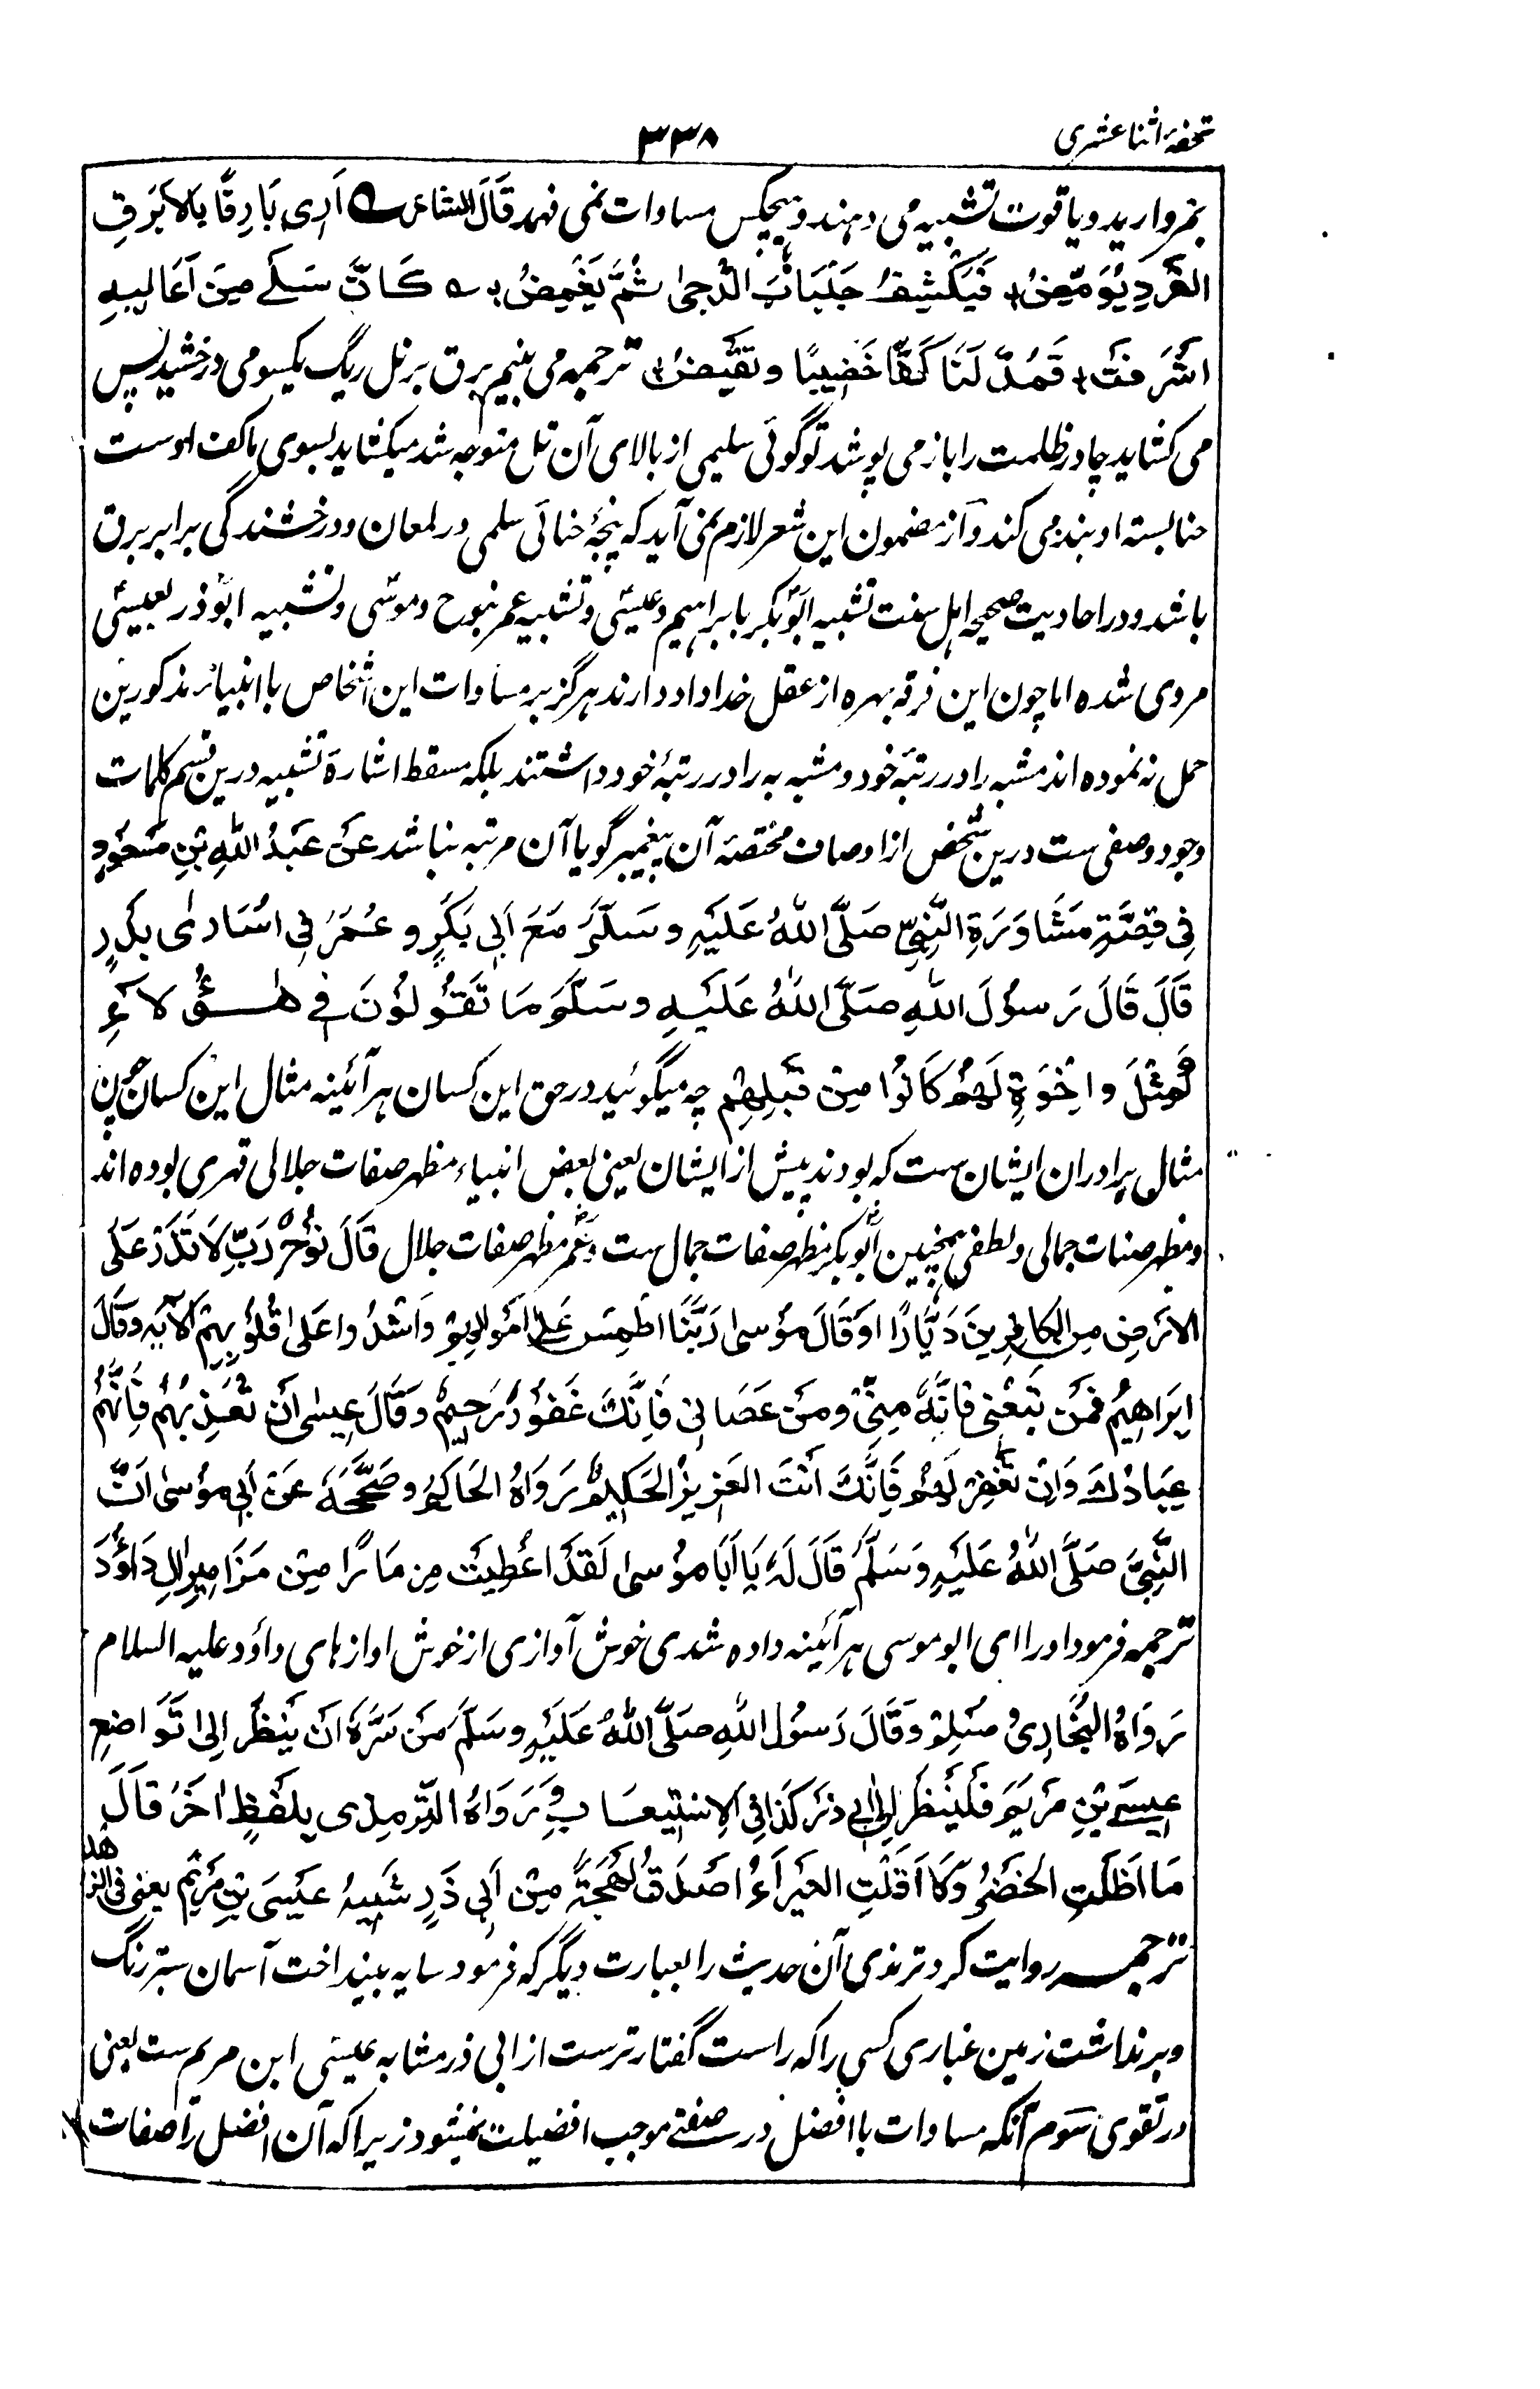 تحفهٔ اثنا عشری
۳۳۸
بمروارید و یاقوت تشبیه می دهند و هیچکس مساوات نمی فهمد قَالَ الشاعر ے اَرٰی بَارِقًا بِالاَبْرَقِ
الفَرْدِ یُوْمِضُ، فَیَکْشِفُ جِلْبَابَ الدُّجٰی ثُمَّ یَغْمِضُ، ے کَاَنَّ سَلْمٰے مِنْ اَعَالِیهِ
اشْرَفَتْ، تَمُدُّ لَنَا کَفًّا خَضِیبًا وتَقْبِضُ، ترجمه می بینم برق بر تل ریگ یکسو می درخشید پس
می کشاید چادر ظلمت را باز می پوشد تو گوئی سلیمی از بالای آن تل متوجه شد میکشاید بسوی ما کف دوست
حنا بسته او بند می کند و از مضمون این شعر لازم نمی آید که پنجهٔ حنائی سلمی در لمعان و درخشندگی برابر برق
باشد و در احادیث صحیحه اهل سنت تشبیه ابوبکر با براهیم و عیسی و تشبیه عمر بنوح و موسی و تشبیه ابوذر بعیسی
مروی شده اما چون این فرقه بهره از عقل خداداد دارند هرگز بر مساوات این اشخاص با انبیاء مذکورین
حمل نه نموده اند مشبه را در رتبهٔ خود و مشبه به را در رتبهٔ خود داشتند بلکه مسقط اشارهٔ تشبیه درین قسم کلمات
وجود وصفی ست درین شخص از اوصاف مختصه آن پیغمبر گو با آن مرتبه نباشد عَن عَبْدُ اللّٰهِ بْنِ مَسْعُودٍ
فِی قِصَّةِ مَشَاوَرَةِ النَّبِیِّ صَلَّی اللّٰهُ عَلَیْهِ وسَلَّمَ مَعَ اَبِی بَکْرٍ و عُمَرَ فِی اُسَارٰی بَدْرٍ
قَالَ قَالَ رَسُوْلَ اللّٰهِ صَلَّی اللّٰهُ عَلَیْهِ وسَلَّمَ مَا تَقُوْلُوْنَ فِی هٰؤُلَاءِ
لَمِثْلَ وَاِخْوَةٍ لَهُمْ کَانُوْا مِنْ قَبْلِهِمْ چه میگوئید در حق این کسان هر آئینه مثال این کسان چون
مثال برادران ایشان ست که بودند پیش از ایشان یعنی بعض انبیاء مظهر صفات جلالی قهری بوده اند
و مظهر صفات جمالی و لطفی همچنین ابوبکر مظهر صفات جمال ست و عمر مظهر صفات جلال قَالَ نُوْحٌ رَبِّ لَا تَذَرْ عَلَی
الْاَرْضِ مِنَ الْکَافِرِیْنَ دَیَّارًا وَقَالَ مُوْسٰی رَبَّنَا اطْمِسْ عَلٰی اَمْوَالِهِمْ وَاشْدُدْ وا عَلٰی قُلُوْبِهِمْ الْاٰیَه وَقَالَ
اِبْرَاهِیْمُ فَمَنْ تَبِعَنِی فَاِنَّهُ مِنِّیْ وَمَنْ عَصَانِی فَاِنَّکَ غَفُوْرٌ رَحِیْمٌ وَقَالَ عِیْسٰی اِنْ تُعَذِّبْهُمْ فَاِنَّهُمْ
عِبَادُكَ وَاِنْ تَغْفِرْ لَهُمْ فَاِنَّكَ اَنْتَ الْعَزِیْزُ الْحَکِیْمُ رَوَاهُ الْحَاکِمُ وصَحَّحَهُ عَنْ اَبِی مُوْسٰی اَنَّ
النَّبِیَّ صَلَّی اللّٰهُ عَلَیْهِ وَسَلَّمَ قَالَ لَهُ یَا اَبَا مُوْسٰی لَقَدْ اُعْطِیْتَ مِزْمَارًا مِنْ مَزَامِیْرِ اٰلِ دَاوُدَ
ترجمه فرمود او را ای ابو موسی هر آئینه داده شدی خوش آوازی از خوش اوازهای داؤد علیه السلام
رَوَاهُ الْبُخَارِیُ مُسْلِم وَقَالَ رَسُوْلُ اللّٰهِ صَلَّی اللّٰهُ عَلَیْهِ وسَلَّمَ مَنْ سَرَّهُ اَنْ یَنْظُرَ اِلٰی تَوَاضِعِ
عِیْسَے بْنِ مَرْیَمَ فَلْیَنْظُرْ اِلٰی اَبِی ذَرّ کَذَا فِی الْاِسْتِیْعَابِ وَرَوَاهُ التِّرْمِذِی بِلَفْظٍ اٰخَرَ قَالَ
مَا اَظَلَّتِ الْخَضْرُ وَلَا اَقَلَّتِ الْغَبْرَاءُ اَصْدَقُ لَهْجَةً مِنْ اَبِی ذَرٍ شَبِیْهُ عِیْسَی بْنِ مَرْیَم یعنی فی الزهد
ترجمه روایت کرد ترمذی آن حدیث را بعبارت دیگر که فرمود سایه بینداخت آسمان سبز رنگ
و برنداشت زمین غباری کسی را که راست گفتار ترست از ابی ذر مشابه عیسی ابن مریم ست یعنی
در تقوی سوم آنکه مساوات با افضل در صفتے موجب افضیلت نمیشود زیرا که آن افضل را صفات